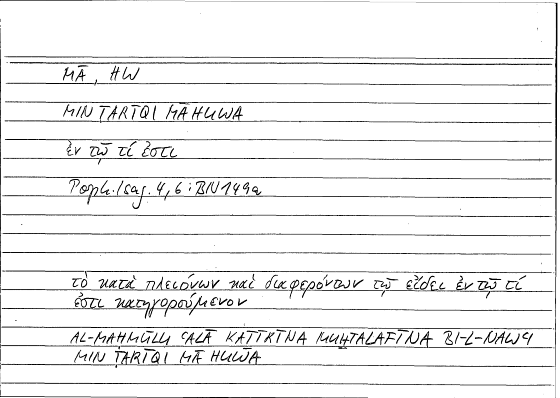 MĀ, HW
MIN ṬARĪQI MĀ HUWA
ἐν τῷ τί ἐστι
Porph. Isag. 4, 6 : BN 149a
τὸ κατὰ πλειόνων καὶ διαφερόντων τῷ εἴδει ἐν τῷ τί
ἐστι κατηγορούμενον
AL-MAḤMŪLU ʿALĀ KAṮĪRĪNA MUḪTALAFĪNA BI-L-NAWʿ
MIN ṬARĪQI MĀ HUWA